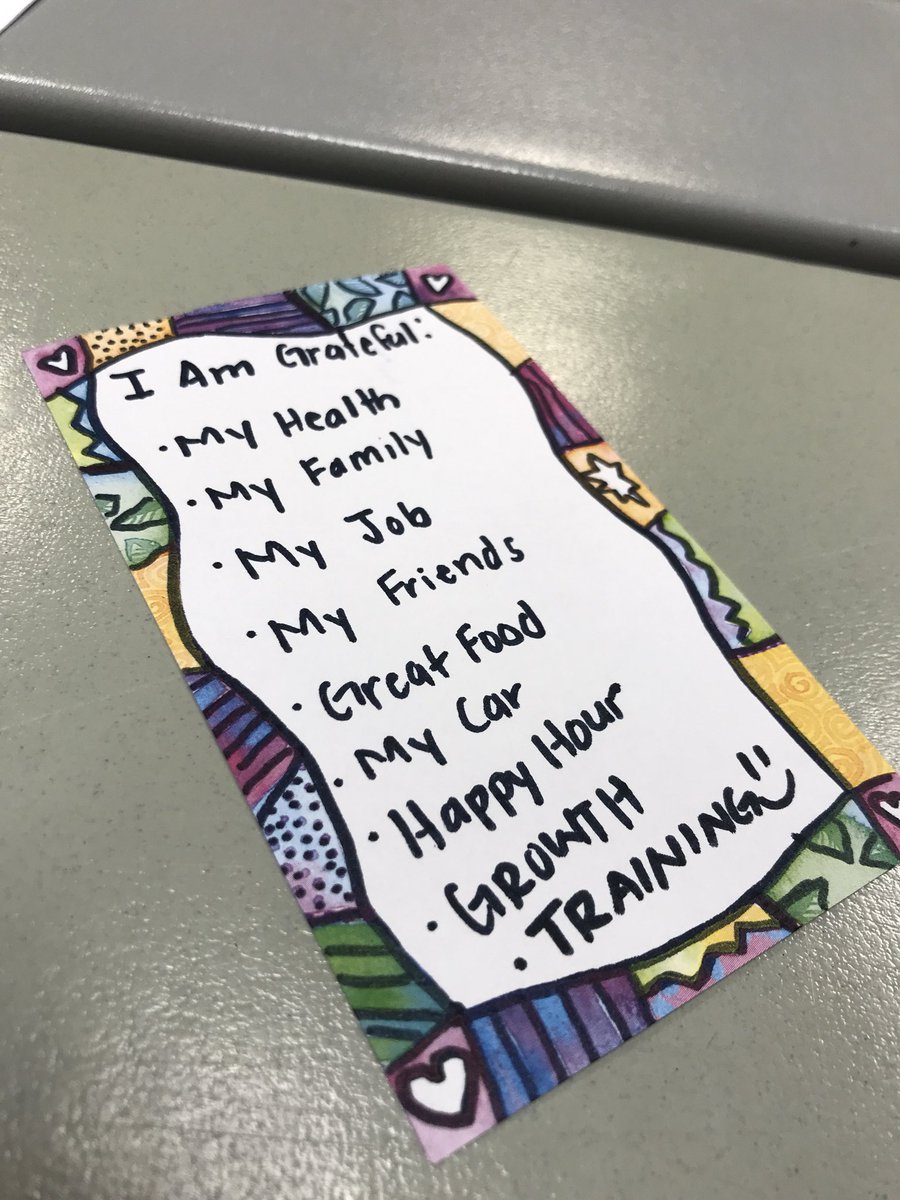 I Am Grateful:
· My Health
· My Family
· My Job
· My Friends
· Great Food
· My Car
· Happy Hour
· GROWTH
· TRAINING